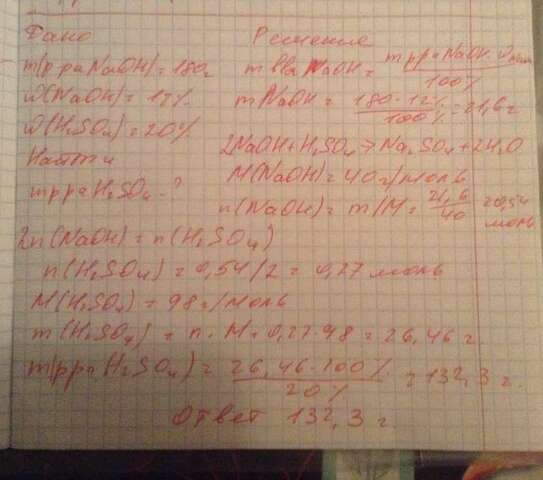 Дано
m(р-ра NaOH) = 180г
ω(NaOH) = 12%
ω(H₂SO₄) = 20%
Найти
m р-ра H₂SO₄ - ?
Решение
m в-ва NaOH = m р-ра NaOH · ω / 100%
m NaOH = 180·12% / 100% = 21,6 г
2NaOH + H₂SO₄ → Na₂SO₄ + 2H₂O
M(NaOH) = 40 г/моль
n(NaOH) = m/M = 21,6 / 40 = 0,54 моль
2n(NaOH) = n(H₂SO₄)
n(H₂SO₄) = 0,54/2 = 0,27 моль
M(H₂SO₄) = 98 г/моль
m(H₂SO₄) = n·M = 0,27·98 = 26,46 г
m(р-ра H₂SO₄) = 26,46·100% / 20% = 132,3 г.
Ответ 132,3 г.